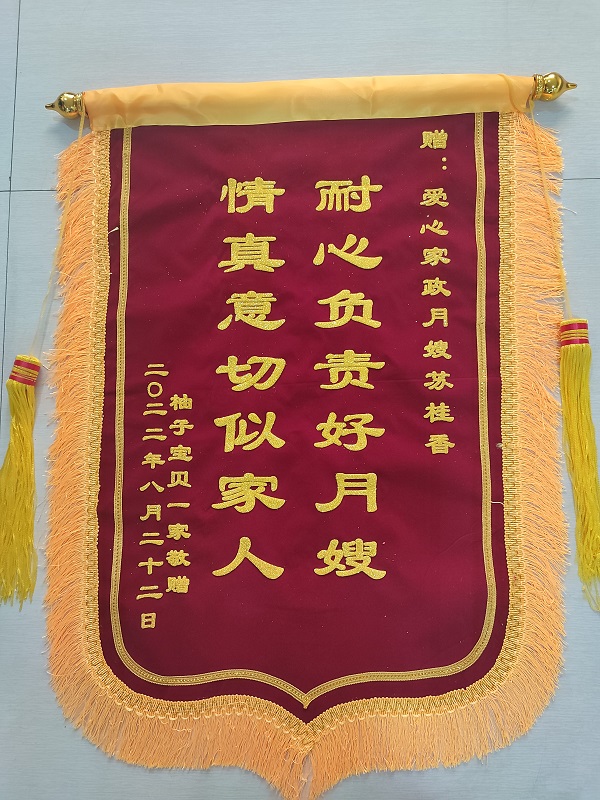 赠：爱心家政月嫂苏桂香
耐心负责好月嫂
情真意切似家人
柚子宝贝一家敬赠
二〇二二年八月二十二日